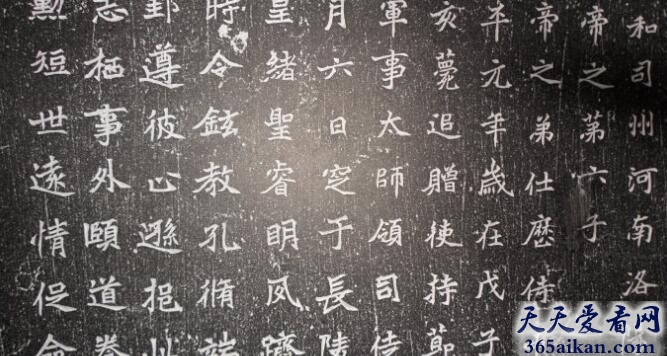 和司州河南洛
帝之第六子
帝之弟仕歷侍
平元年歲在戊子
亥薨追贈使持節
軍事太師領司徒
月六日窆于長陵
皇緒聖睿明夙躋
時令鉉教孔脩端
郢遵彼止遜挹此
志栖事外頤道養
勳短世遠情促命
天天爱看网
365aikan.com